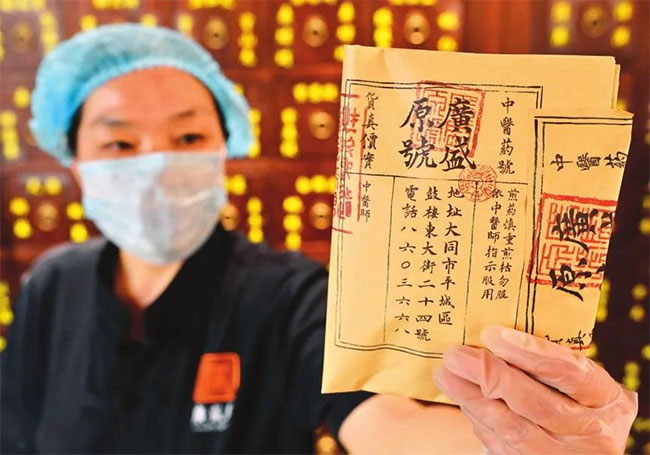 中醫药號
廣盛
原號
貨真價實
煎药慎重煎枯勿服
依中醫師指示服用
地址大同市平城區
鼓樓東大街二十四號
電話八六〇三六六八
中醫師
中醫药
廣
原